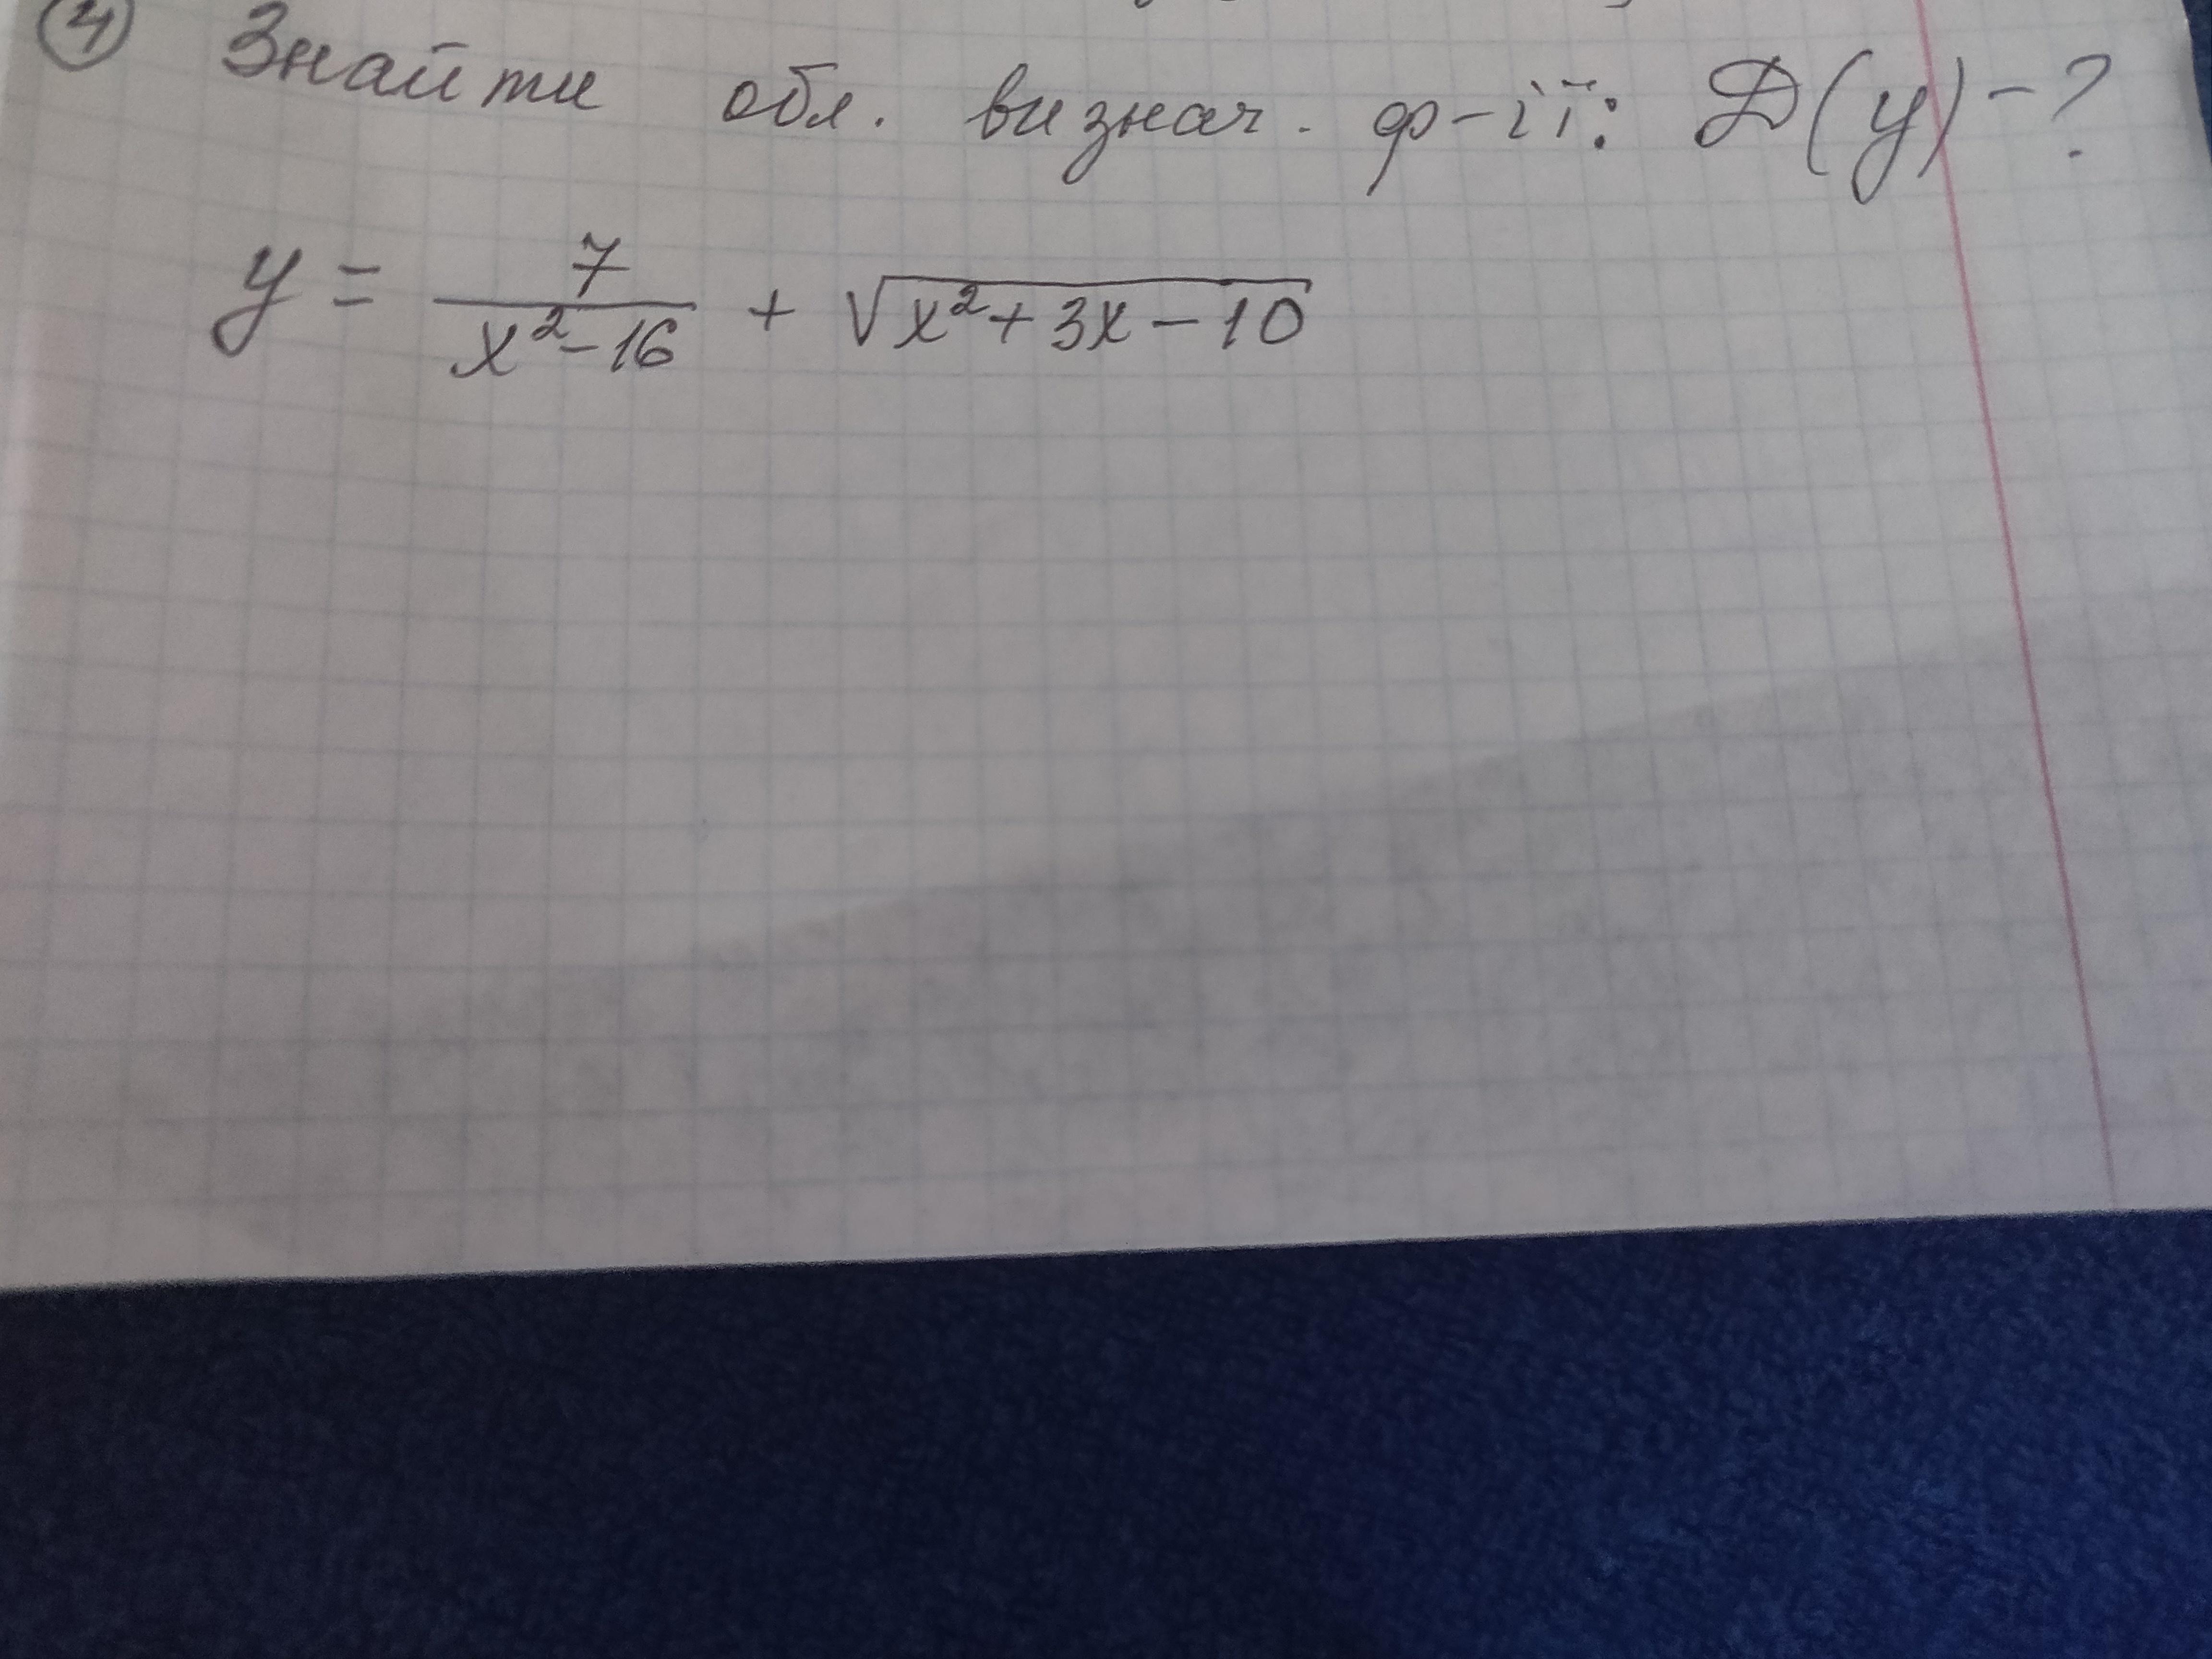 ④ Знайти обл. визнач. ф-ії: D(y)-?
y = 7/(x²-16) + √(x²+3x-10)